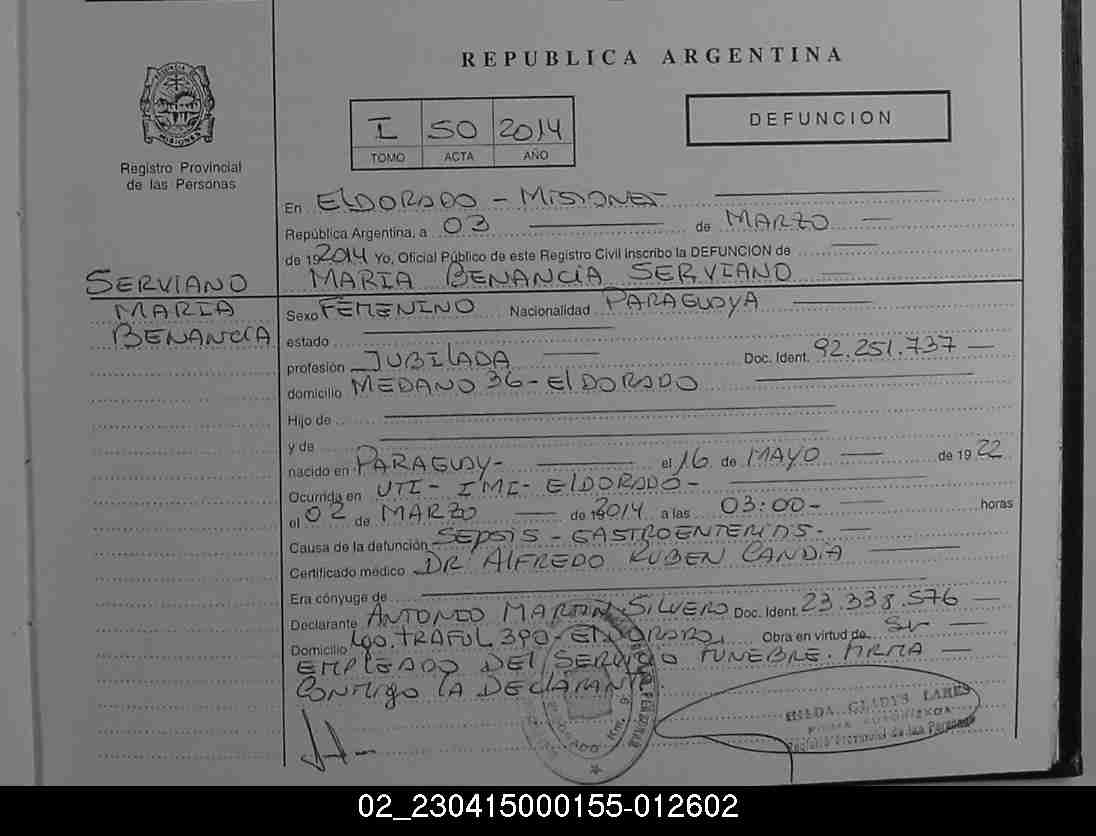 REPUBLICA ARGENTINA
PROVINCIA DE
MISIONES
Registro Provincial
de las Personas
I 50 2014
TOMO ACTA AÑO
DEFUNCION
En ELDORADO - MISIONES
República Argentina, a 03 de MARZO
de 192014 Yo, Oficial Público de este Registro Civil inscribo la DEFUNCION de
SERVIANO
MARIA
BENANCIA
MARIA BENANCIA SERVIANO
Sexo FEMENINO Nacionalidad PARAGUAYA
estado
profesión JUBILADA Doc. Ident. 92.251.737
domicilio MEDANO 36 - ELDORADO
Hijo de
y de
nacido en PARAGUAY- el 16 de MAYO de 1922
Ocurrida en UTI - IMI - ELDORADO -
el 02 de MARZO de 2014 a las 03:00- horas
Causa de la defunción SEPSIS - GASTROENTERITIS.
Certificado médico DR ALFREDO RUBEN CANDIA
Era cónyuge de
Declarante ANTONIO MARTIN SILVERO Doc. Ident. 23.338.576
Domicilio Lgo. TRAFUL 390 - ELDORADO, Obra en virtud de
EMPLEADO DEL SERVICIO FUNEBRE. FIRMA
CONMIGO LA DECLARANTE
HILDA GLADYS LARES
Registro Provincial de las Personas
02_230415000155-012602